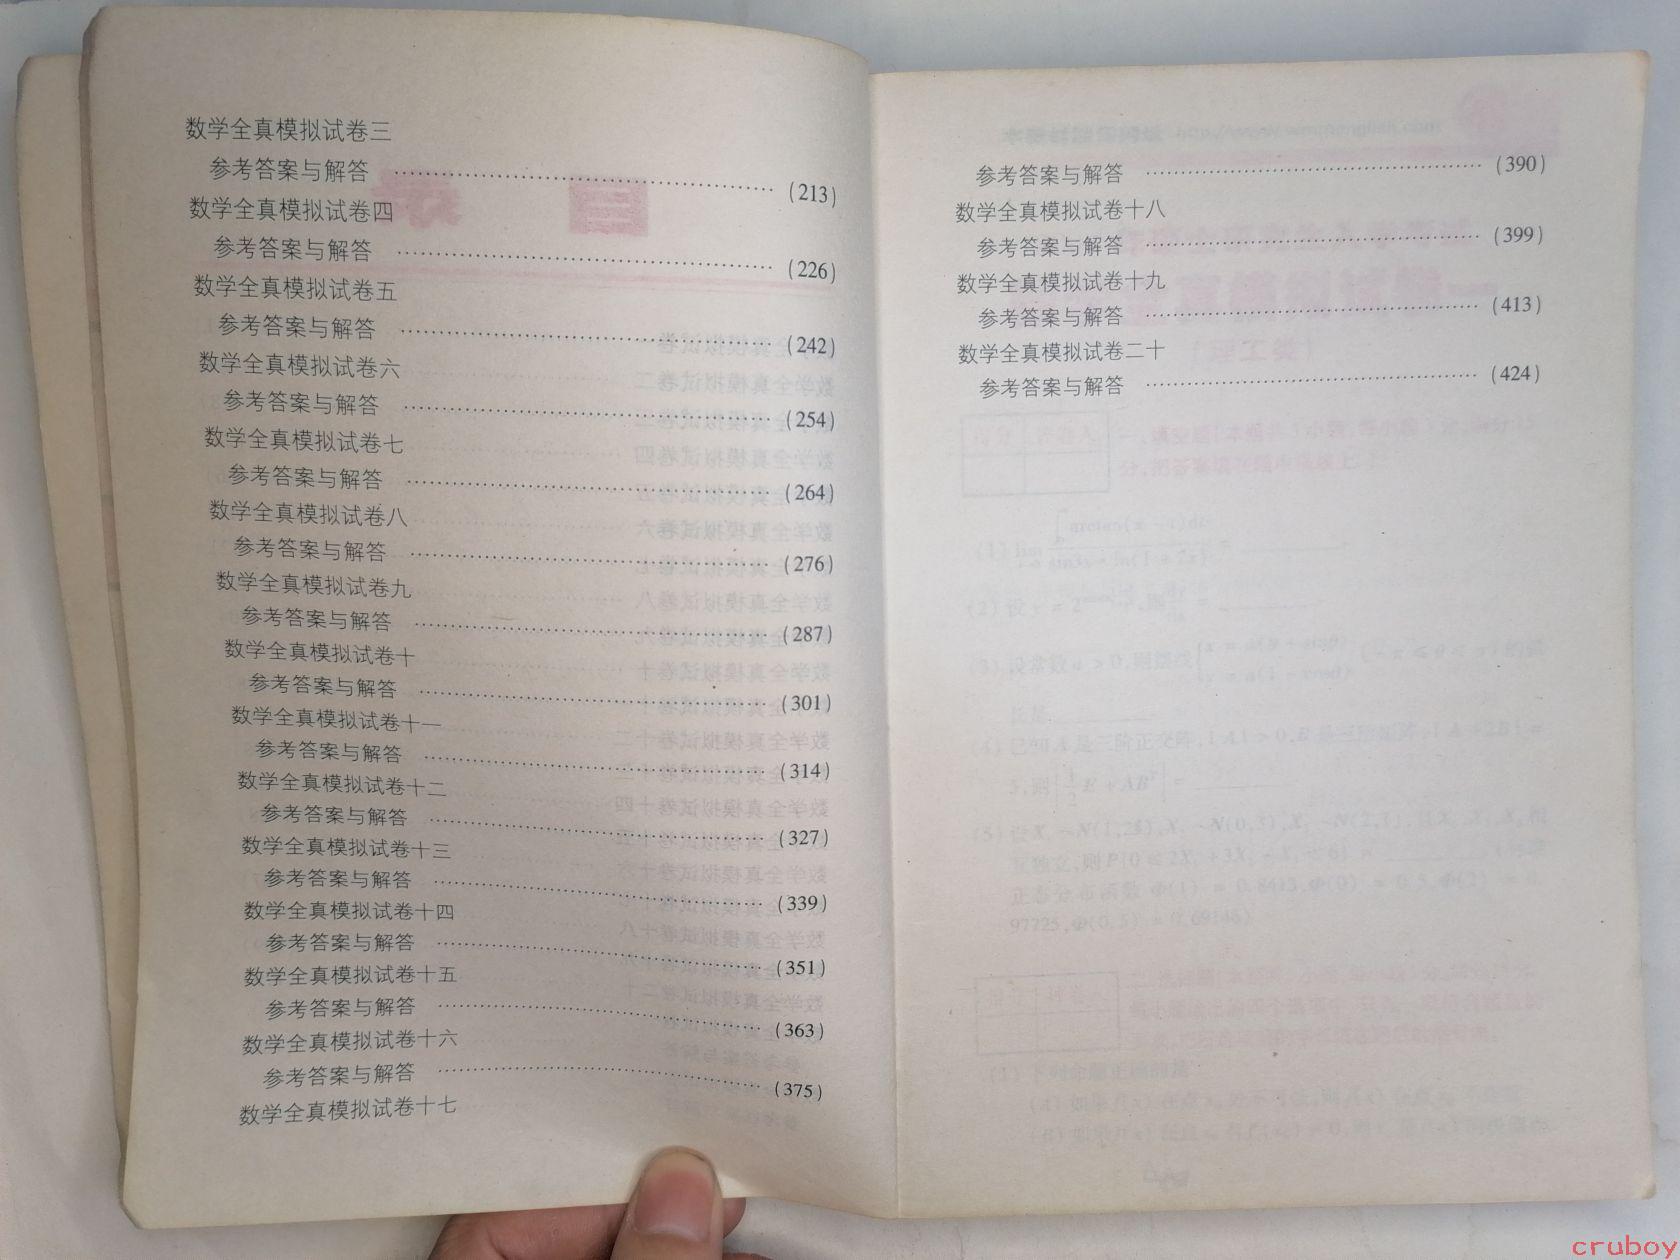 数学全真模拟试卷三
参考答案与解答 ……………………………………………… (213)
数学全真模拟试卷四
参考答案与解答 ……………………………………………… (226)
数学全真模拟试卷五
参考答案与解答 ……………………………………………… (242)
数学全真模拟试卷六
参考答案与解答 ……………………………………………… (254)
数学全真模拟试卷七
参考答案与解答 ……………………………………………… (264)
数学全真模拟试卷八
参考答案与解答 ……………………………………………… (276)
数学全真模拟试卷九
参考答案与解答 ……………………………………………… (287)
数学全真模拟试卷十
参考答案与解答 ……………………………………………… (301)
数学全真模拟试卷十一
参考答案与解答 ……………………………………………… (314)
数学全真模拟试卷十二
参考答案与解答 ……………………………………………… (327)
数学全真模拟试卷十三
参考答案与解答 ……………………………………………… (339)
数学全真模拟试卷十四
参考答案与解答 ……………………………………………… (351)
数学全真模拟试卷十五
参考答案与解答 ……………………………………………… (363)
数学全真模拟试卷十六
参考答案与解答 ……………………………………………… (375)
数学全真模拟试卷十七
参考答案与解答 ……………………………………………… (390)
数学全真模拟试卷十八
参考答案与解答 ……………………………………………… (399)
数学全真模拟试卷十九
参考答案与解答 ……………………………………………… (413)
数学全真模拟试卷二十
参考答案与解答 ……………………………………………… (424)
cruboy